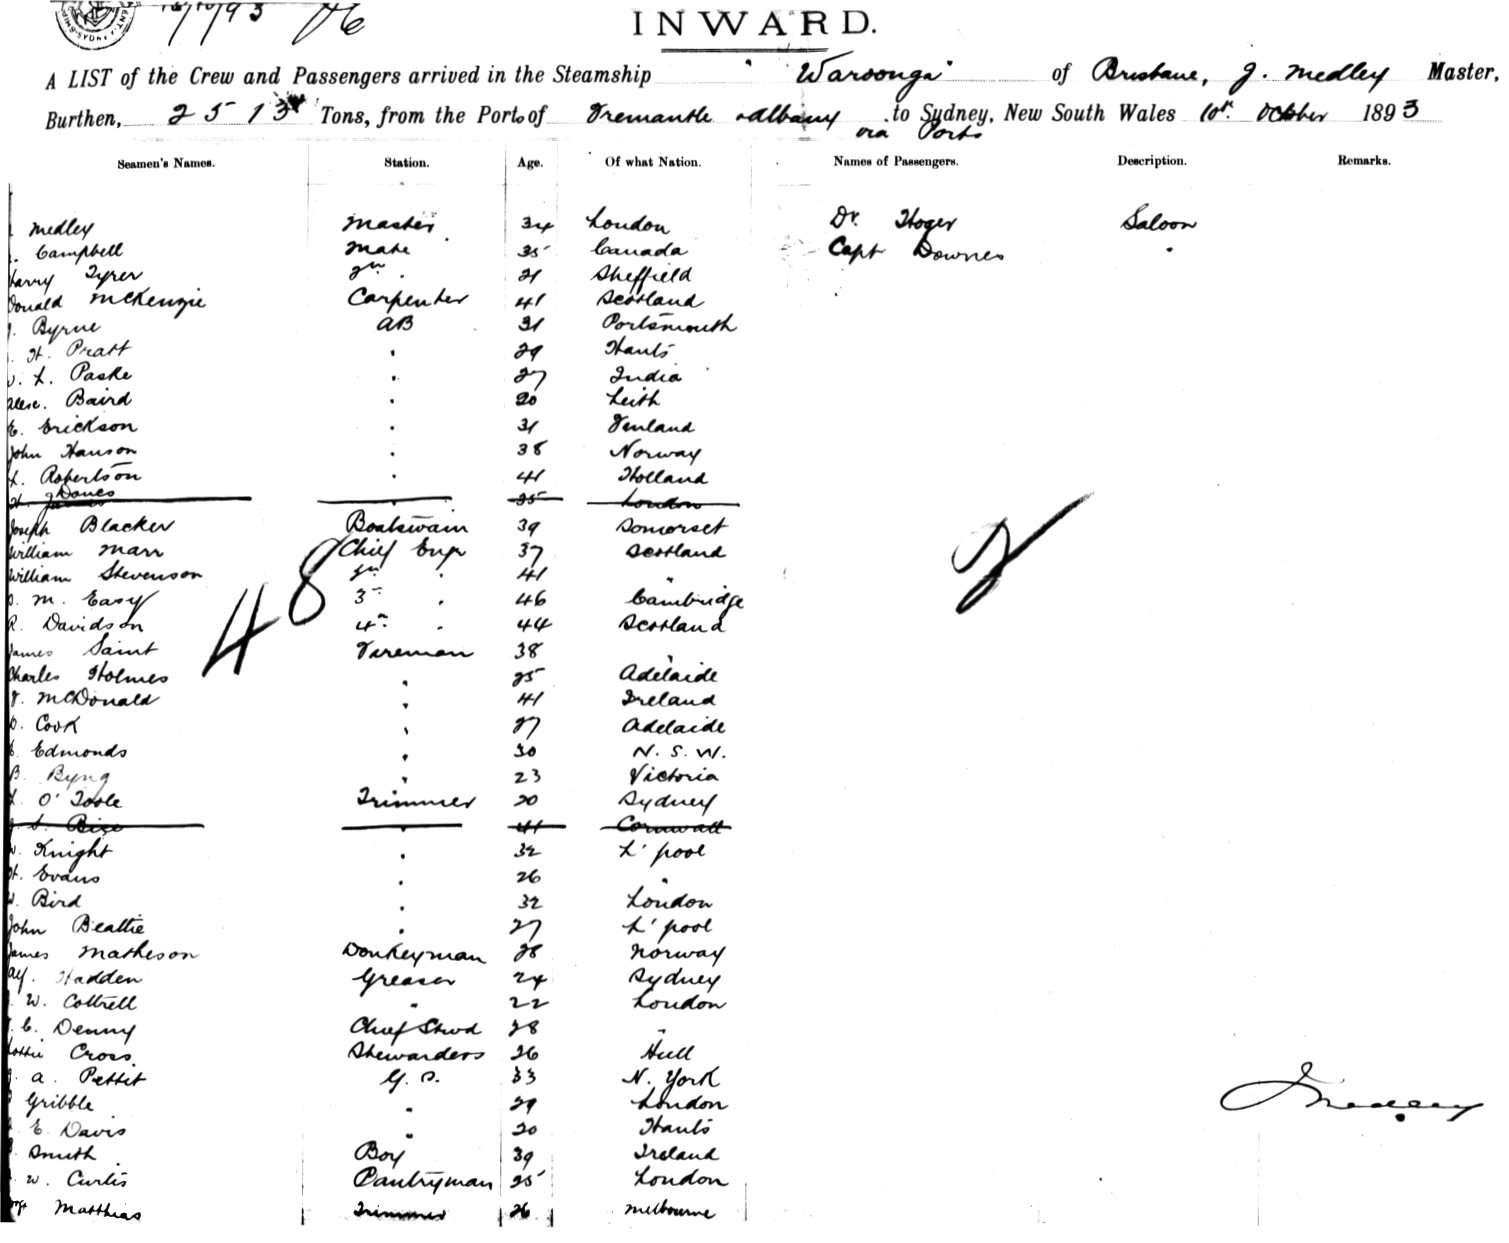 INWARD.
A LIST of the Crew and Passengers arrived in the Steamship "Waroonga" of Brisbane, J. Medley Master,
Burthen, 2513 Tons, from the Port of Fremantle Albany to Sydney, New South Wales 10th October 1893
via Ports
Seamen's Names. Station. Age. Of what Nation. Names of Passengers. Description. Remarks.
Medley Master 34 London Dr. Hoger Saloon
Campbell Mate 35 Canada Capt Downes "
Harry Tyrer 2nd " 21 Sheffield
Donald McKenzie Carpenter 41 Scotland
J. Byrne AB 31 Portsmouth
H. Pratt " 29 Hants
L. Paske " 27 India
Alexr. Baird " 20 Leith
E. Erickson " 31 Finland
John Hanson " 38 Norway
L. Robertson " 41 Holland
H. James " 35 London
Joseph Blacker Boatswain 39 Somerset
William Marr Chief Engr 37 Scotland
William Stevenson 2nd " 41 "
M. Easy 3rd " 46 Cambridge
R. Davidson 4th " 44 Scotland
James Saint Fireman 38 "
Charles Holmes " 25 Adelaide
McDonald " 41 Ireland
Cook " 27 Adelaide
E. Edmonds " 30 N. S. W.
B. Byng " 23 Victoria
O'Toole Trimmer 20 Sydney
Rice " 41 Cornwall
W. Knight " 32 L'pool
H. Evans " 26 "
W. Bird " 32 London
John Beattie " 27 L'pool
James Matheson Donkeyman 28 Norway
Alf. Hadden Greaser 24 Sydney
W. Cottrell " 22 London
C. Denny Chief Stwd 28 "
Lottie Cross Stewardess 26 Hull
A. Pettit G. S. 33 N. York
Gribble " 29 London
E. Davis " 20 Hants
Smith Boy 39 Ireland
W. Curtis Pantryman 25 London
Matthias Trimmer 26 Melbourne
48
2
J Medley